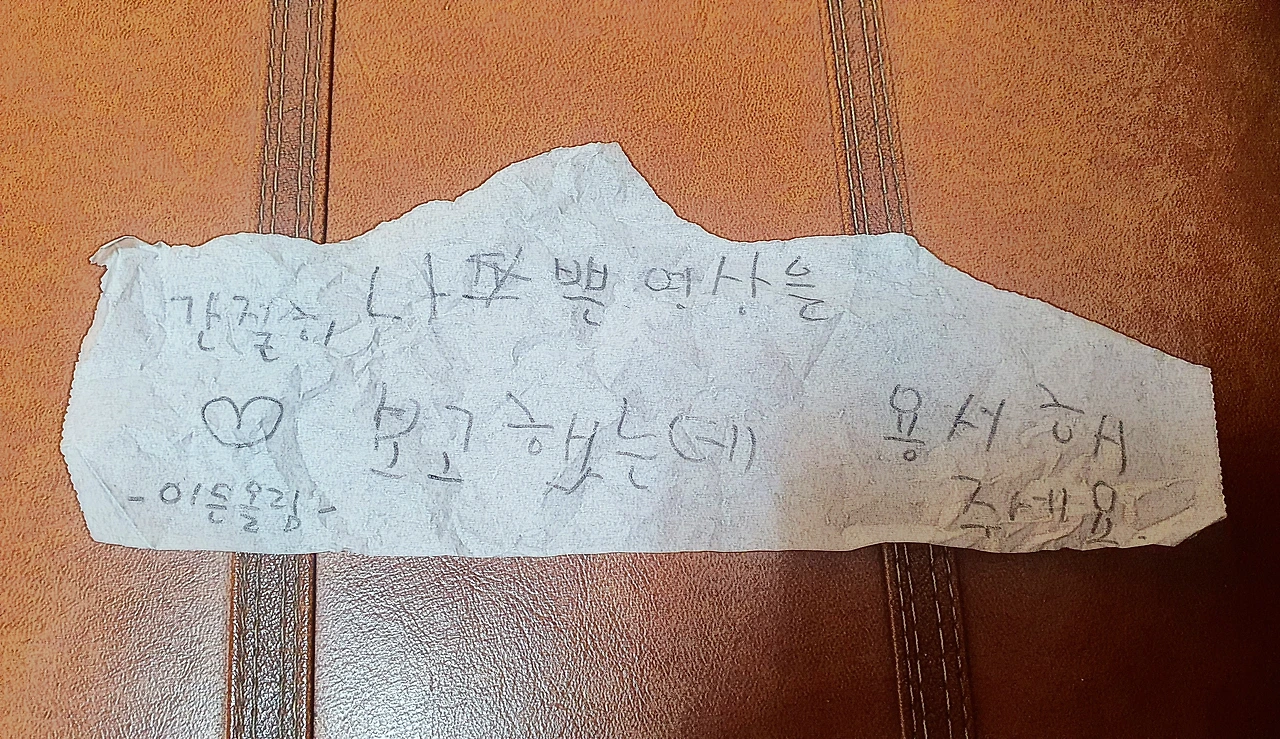 간절히 나쁜 영상을
보고 했는데 용서해
주세요.
♡
-이든올림-